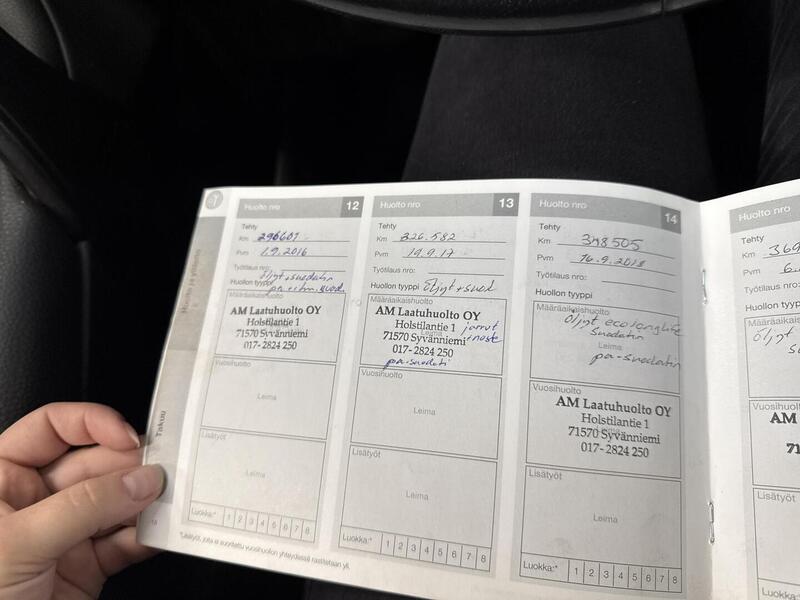 Huolto ja ylläpito
Takuu
18
Huolto nro 12
Tehty
Km 296601
Pvm 1.9.2016
Työtilaus nro:
öljyt + suodatin
Huollon tyyppi pa + ilm. suod.
Määräaikaishuolto
AM Laatuhuolto OY
Holstilantie 1
71570 Syvänniemi
017- 2824 250
Vuosihuolto
Leima
Lisätyöt
Leima
Luokka:* 1 2 3 4 5 6 7 8
Huolto nro 13
Tehty
Km 326.582
Pvm 19.9.17
Työtilaus nro:
Huollon tyyppi öljyt + suod
Määräaikaishuolto
AM Laatuhuolto OY
Holstilantie 1 jarrut
71570 Syvänniemi + neste
Leima
017- 2824 250
pa-suodati
Vuosihuolto
Leima
Lisätyöt
Leima
Luokka:* 1 2 3 4 5 6 7 8
Huolto nro 14
Tehty
Km 348505
Pvm 16.9.2018
Työtilaus nro:
Huollon tyyppi
Määräaikaishuolto
Öljyt eco longlife
Suodatin
Leima
pa-suodatin
Vuosihuolto
AM Laatuhuolto OY
Holstilantie 1
Leima
71570 Syvänniemi
017- 2824 250
Lisätyöt
Leima
Luokka:* 1 2 3 4 5 6 7 8
Huolto nro
Tehty
Km 369
Pvm 6.
Työtilaus nro:
Huollon tyyppi
Määräaikaishuolto
Öljyt
Vuosihuolto
AM
71
Lisätyöt
Luokka:*
*Lisätyöt, joita ei suoritettu vuosihuollon yhteydessä rastitetaan yli.